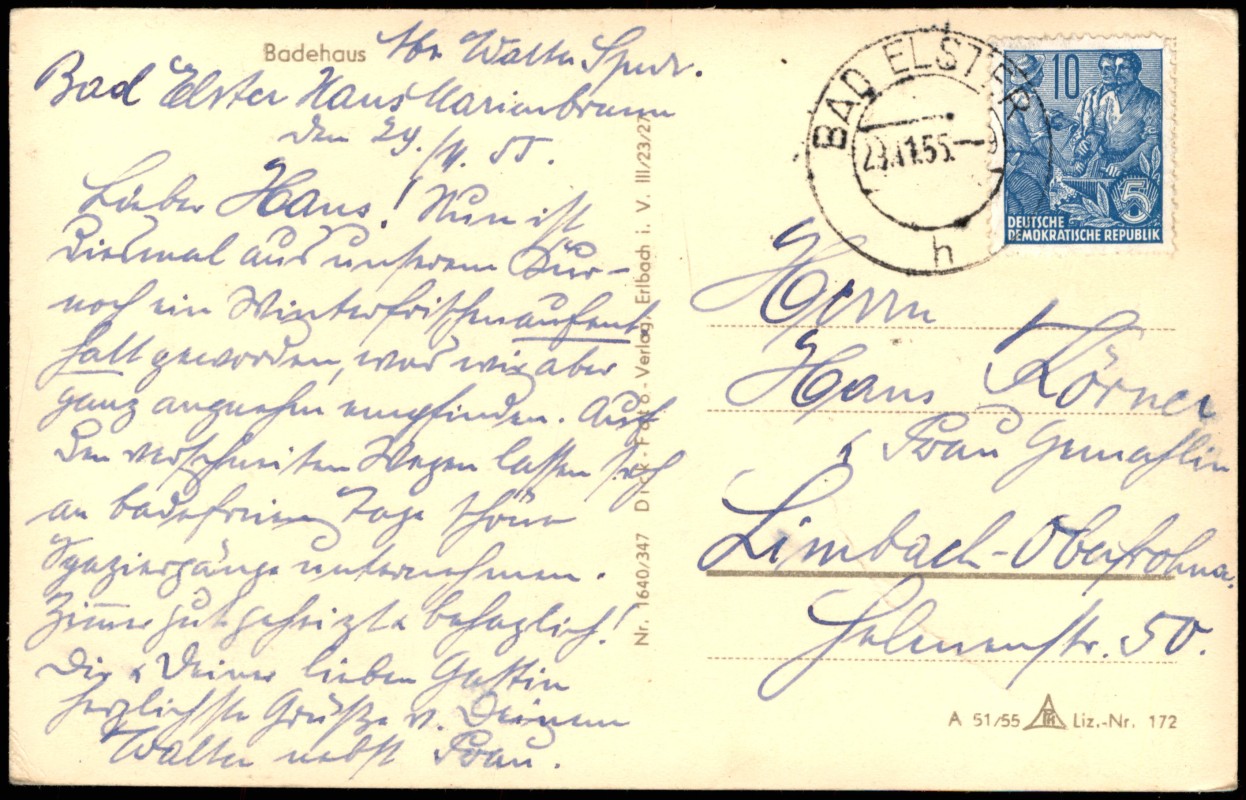 Badehaus
Abs. Walter Spur.
Bad Elster Haus Marienbrunn
den 29./11. 55.
Lieber Hans! Nun ist
diesmal aus unserem Kur-
noch ein Winterfrischenaufent-
halt geworden, was wir aber
ganz angenehm empfinden. Auf
den verschneiten Wegen lassen sich
an badefreien Tage schöne
Spaziergänge unternehmen.
Zimmer gut geheizt & behaglich!
Dir & Deiner lieben Gattin
herzlichste Grüße v. Deinem
Walter nebst Frau.
Nr. 1640/347 Dick-Foto-Verlag, Erlbach i. V. III/23/27
BAD ELSTER
29.11.55.-9
h
10
5
DEUTSCHE
DEMOKRATISCHE REPUBLIK
Herrn
Hans Körner
& Frau Gemahlin
Limbach-Oberfrohna.
Helenenstr. 50.
A 51/55 Liz.-Nr. 172